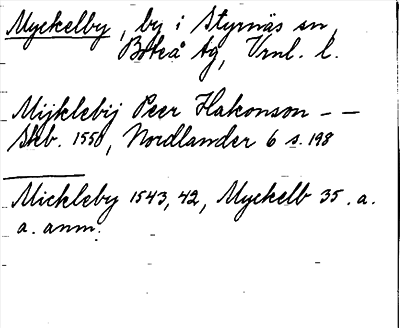 Myckelby, by i Styrnäs sn,
Boteå tg, Vrnl. l.
Mijklebij Peer Hakonson – –
Skb. 1550, Nordlander 6 s. 198
Mickleby 1543, 42, Myckelb 35. a.
a. anm.